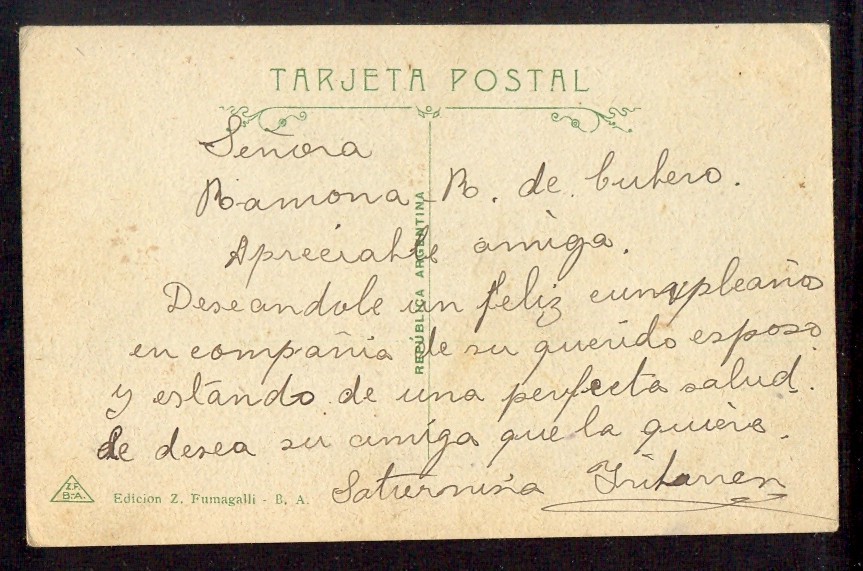 TARJETA POSTAL
REPÚBLICA ARGENTINA
Señora
Ramona R. de Cutero.
Apreciable amiga.
Deseandole un feliz cumpleaños
en compañia de su querido esposo
y estando de una perfecta salud.
Le desea su amiga que la quiere.
Saturnina
Z.F.
B-A.
Edicion Z. Fumagalli - B. A.